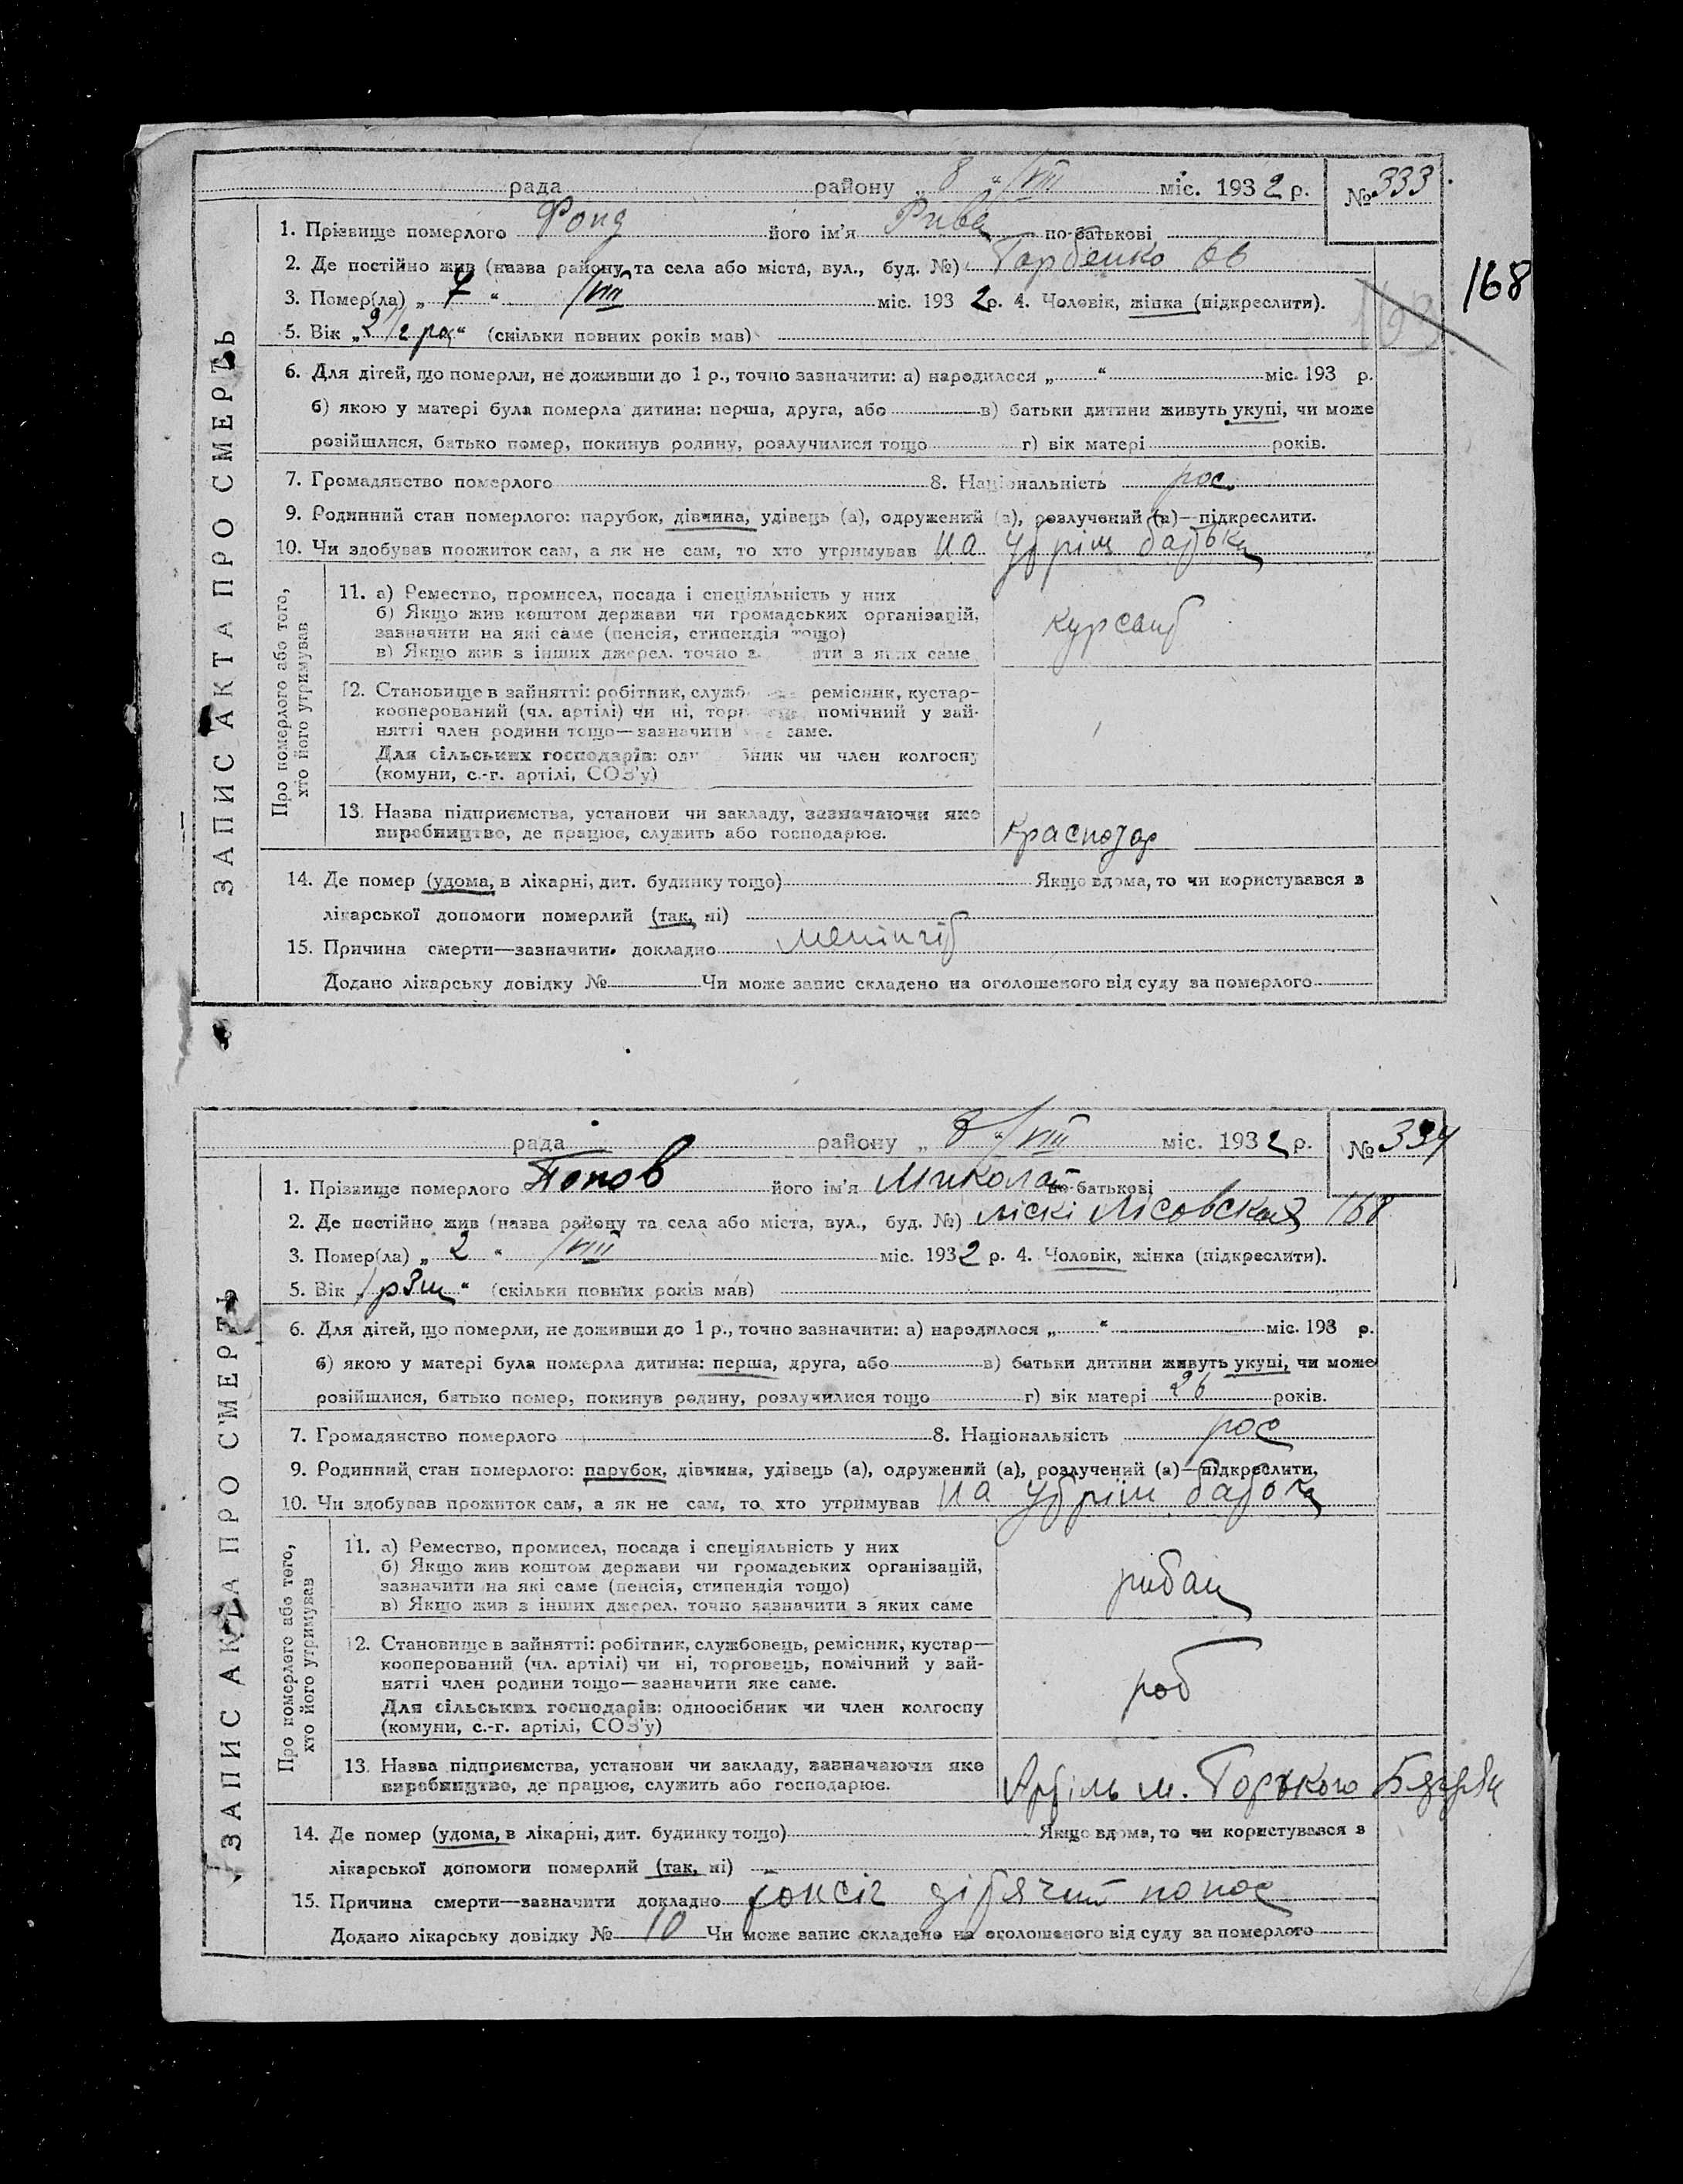 рада районy „ 8 “ /VIII міс. 1932 р. № 333.
168
ЗАПИС АКТА ПРО СМЕРТЬ
1. Прізвище померлого Фонд його ім'я Рива по-батькові
2. Де постійно жив (назва району та села або міста, вул., буд. №) Горбенко 66
3. Помер(ла) „ 7 “ /VIII міс. 1932 р. 4. Чоловік, жінка (підкреслити).
5. Вік „2 1/2 рок“ (скільки повних років мав)
6. Для дітей, що померли, не доживши до 1 р., точно зазначити: а) народилося „ “ міс. 193 р.
б) якою у матері була померла дитина: перша, друга, або в) батьки дитини живуть укупі, чи може
розійшлися, батько помер, покинув родину, розлучилися тощо г) вік матері років.
7. Громадянство померлого 8. Національність рос.
9. Родинний стан померлого: парубок, дівчина, удівець (а), одружений (а), розлучений (а)—підкреслити.
10. Чи здобував прожиток сам, а як не сам, то хто утримував на утрім батьки
Про померлого або того, хто його утримував
11. а) Ремество, промисел, посада і спеціяльність у них
б) Якщо жив коштом держави чи громадських організацій,
зазначити на які саме (пенсія, стипендія тощо)
в) Якщо жив з інших джерел, точно з яких саме
курсант
12. Становище в зайнятті: робітник, служб ремісник, кустар-
кооперований (чл. артілі) чи ні, торг помічний у зай-
нятті член родини тощо—зазначити яке саме.
Для сільських господарів: од бник чи член колгоспу
(комуни, с.-г. артілі, СОЗ'у)
13. Назва підприємства, установи чи закладу, зазначаючи яке
виробництво, де працює, служить або господарює.
Краснодар
14. Де помер (удома, в лікарні, дит. будинку тощо) Якщо вдома, то чи користувався з
лікарської допомоги померлий (так, ні)
15. Причина смерти—зазначити докладно менінгіт
Додано лікарську довідку № Чи може запис складено на оголошеного від суду за померлого
рада району „ 8 “ /VIII міс. 1932 р. № 334
ЗАПИС АКТА ПРО СМЕРТЬ
1. Прізвище померлого Попов його ім'я Миколай по-батькові
2. Де постійно жив (назва району та села або міста, вул., буд. №) Ліскі Лісовская 168
3. Помер(ла) „ 2 “ /VIII міс. 1932 р. 4. Чоловік, жінка (підкреслити).
5. Вік „1 р 3 м“ (скільки повних років мав)
6. Для дітей, що померли, не доживши до 1 р., точно зазначити: а) народилося „ “ міс. 193 р.
б) якою у матері була померла дитина: перша, друга, або в) батьки дитини живуть укупі, чи може
розійшлися, батько помер, покинув родину, розлучилися тощо г) вік матері 26 років.
7. Громадянство померлого 8. Національність рос
9. Родинний стан померлого: парубок, дівчина, удівець (а), одружений (а), розлучений (а)—підкреслити.
10. Чи здобував прожиток сам, а як не сам, то хто утримував на утрім батька
Про померлого або того, хто його утримував
11. а) Ремество, промисел, посада і спеціяльність у них
б) Якщо жив коштом держави чи громадських організацій,
зазначити на які саме (пенсія, стипендія тощо)
в) Якщо жив з інших джерел, точно зазначити з яких саме
рибак
12. Становище в зайнятті: робітник, службовець, ремісник, кустар—
кооперований (чл. артілі) чи ні, торговець, помічний у зай-
нятті член родини тощо—зазначити яке саме.
Для сільських господарів: одноосібник чи член колгоспу
(комуни, с.-г. артілі, СОЗ'у)
роб
13. Назва підприємства, установи чи закладу, зазначаючи яке
виробництво, де працює, служить або господарює.
Артіль м. Горького
14. Де помер (удома, в лікарні, дит. будинку тощо) Якщо вдома, то чи користувався з
лікарської допомоги померлий (так, ні)
15. Причина смерти—зазначити докладно дітячий понос
Додано лікарську довідку № 10 Чи може запис складено на оголошеного від суду за померлого